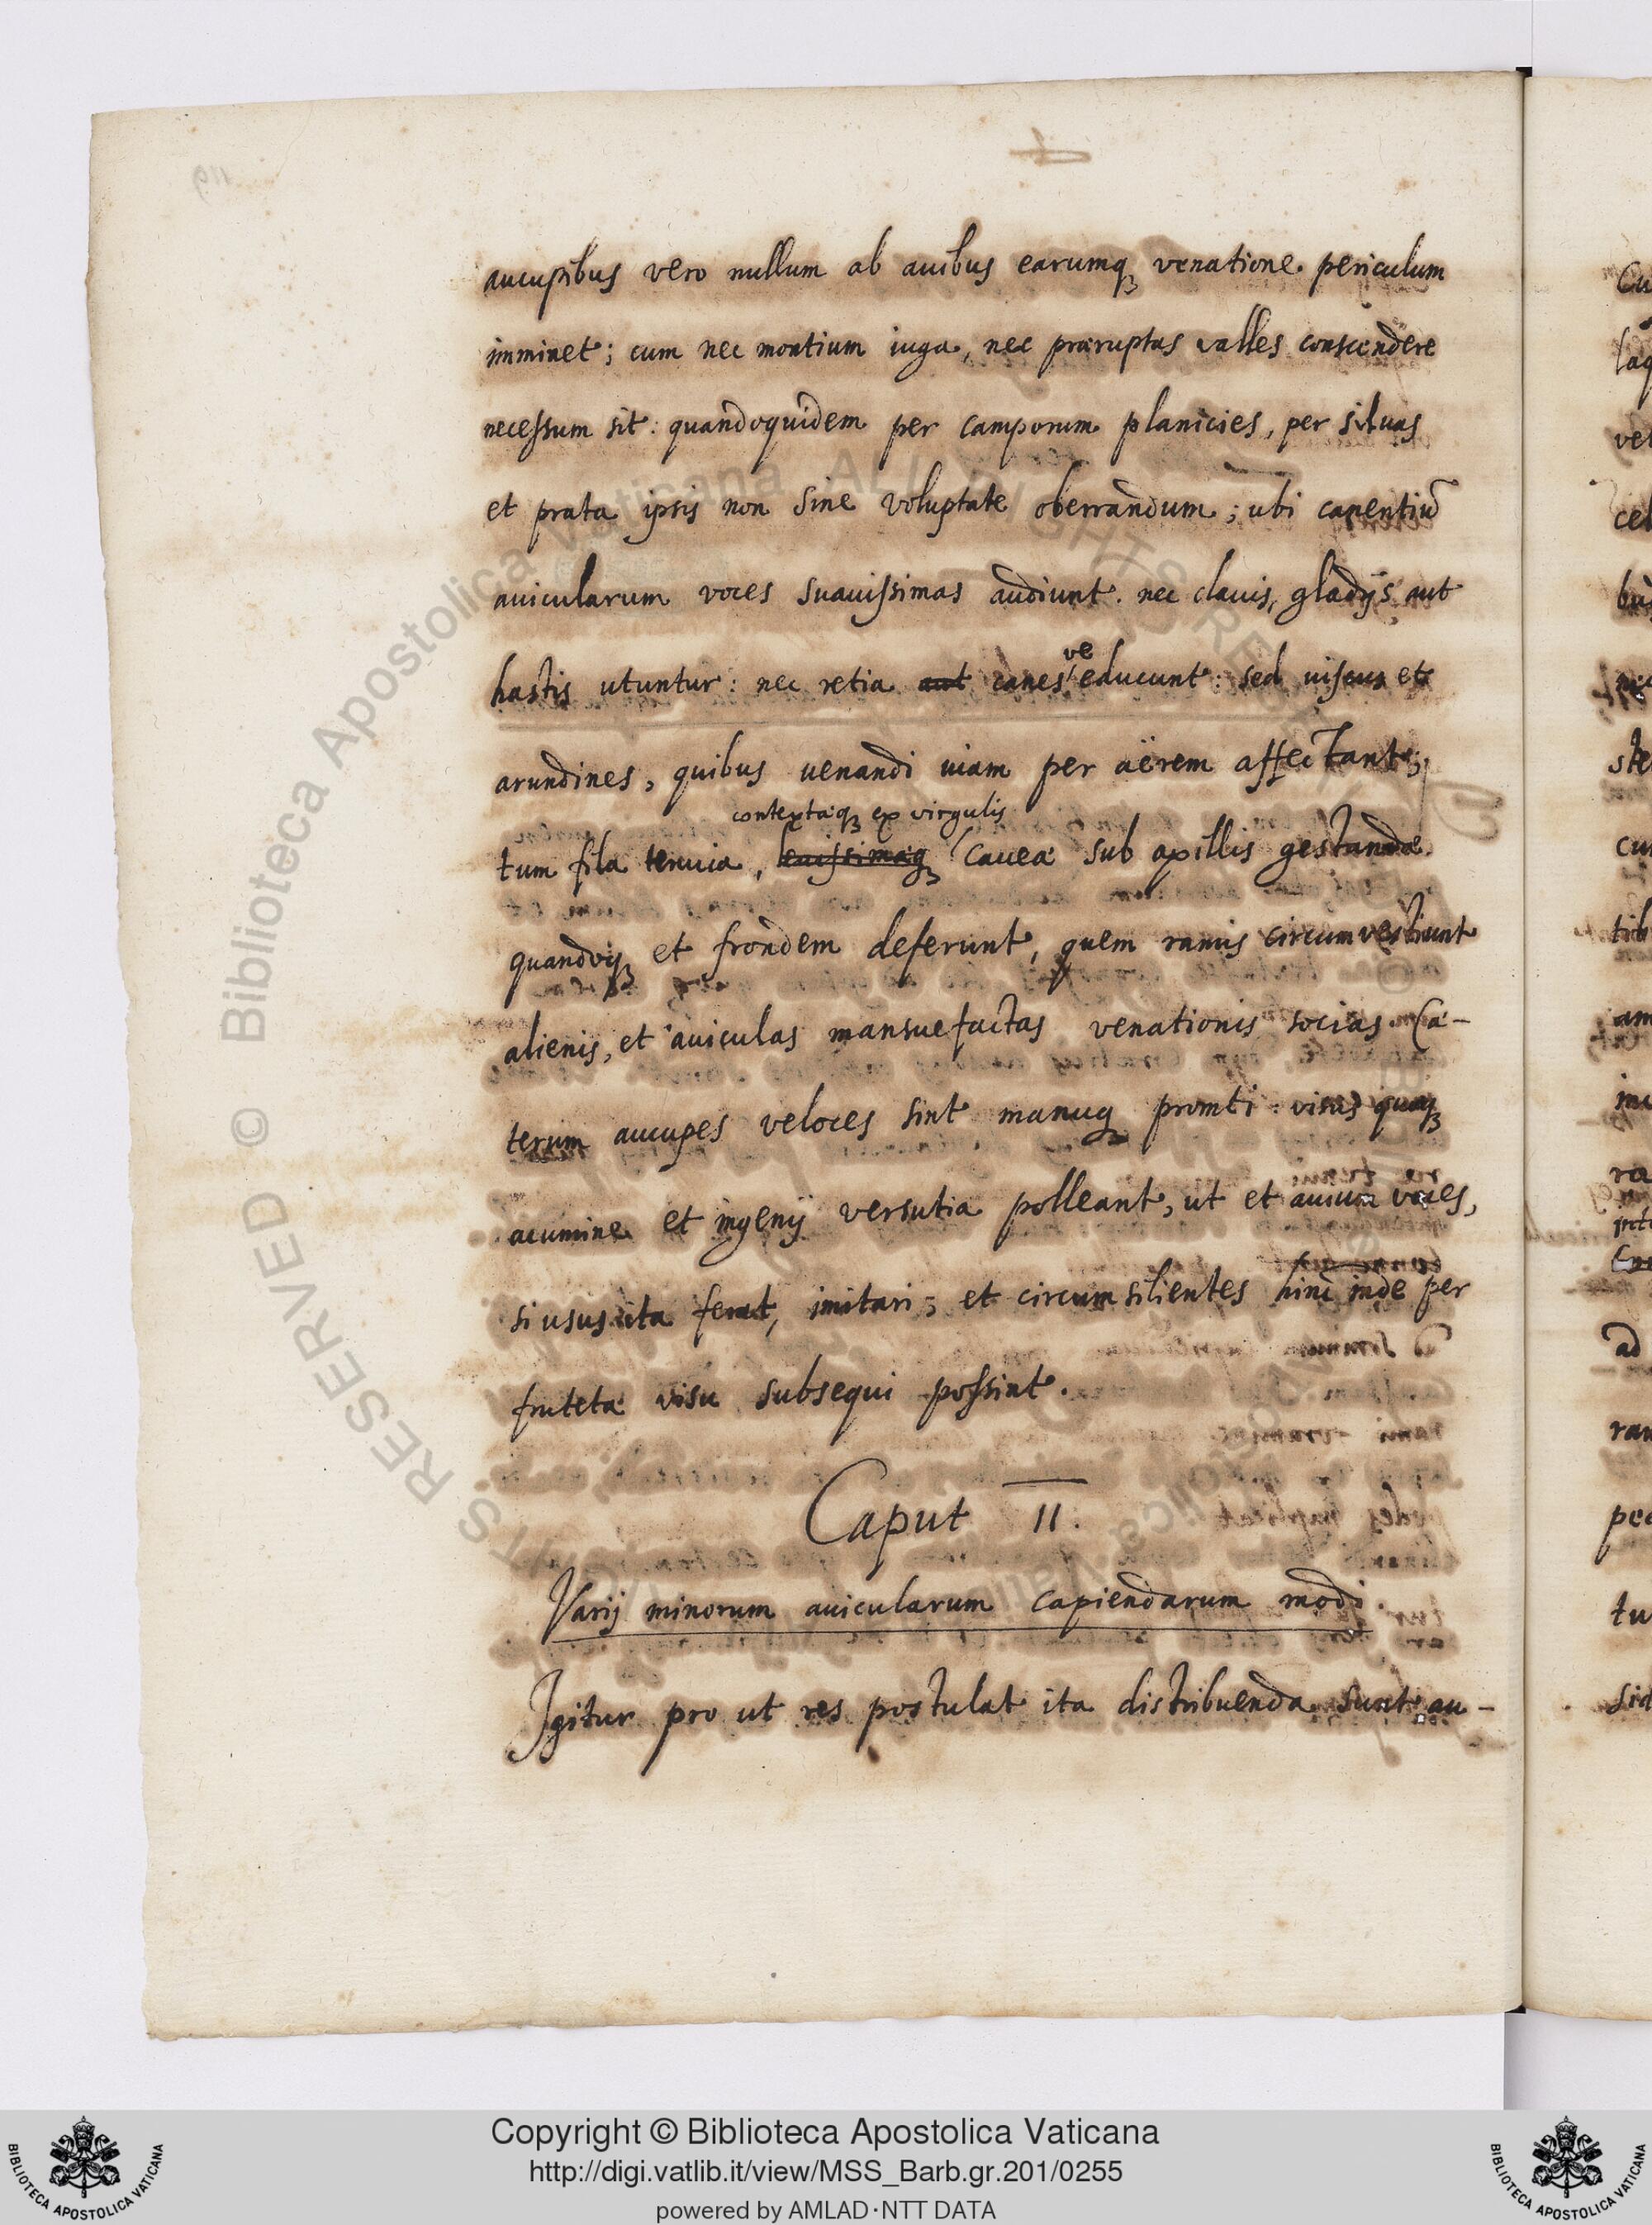 aucupibus vero nullum ab auibus earumq; venatione periculum
imminet; cum nec montium iuga, nec præruptas valles conscendere
necessum sit: quandoquidem per camporum planicies, per siluas
et prata ipsis non sine voluptate oberrandum; ubi canentiū
auicularum voces suauissimas audiunt. nec clauis, gladijs aut
ve
hastis utuntur: nec retia aut canes educunt: sed uiscus et
arundines, quibus uenandi uiam per aërem affectant;
contextaq; ex virgulis
tum fila tenuia, leuissimaq; cauea sub axillis gestanda.
quandoq; et frondem deferunt, quem ramis circumvestiunt
alienis, et auiculas mansuefactas venationis socias. Cæ-
terum aucupes veloces sint manuq; promti: visus quoq;
acumine et ingenij versutia polleant, ut et auium voces,
si usus ita ferat, imitari; et circumsilientes hinc inde per
fruteta visu subsequi possint.
Caput II.
Varij minorum auicularum capiendarum modi.
Igitur pro ut res postulat ita distribuenda sunt au-
Copyright © Biblioteca Apostolica Vaticana
http://digi.vatlib.it/view/MSS_Barb.gr.201/0255
powered by AMLAD·NTT DATA